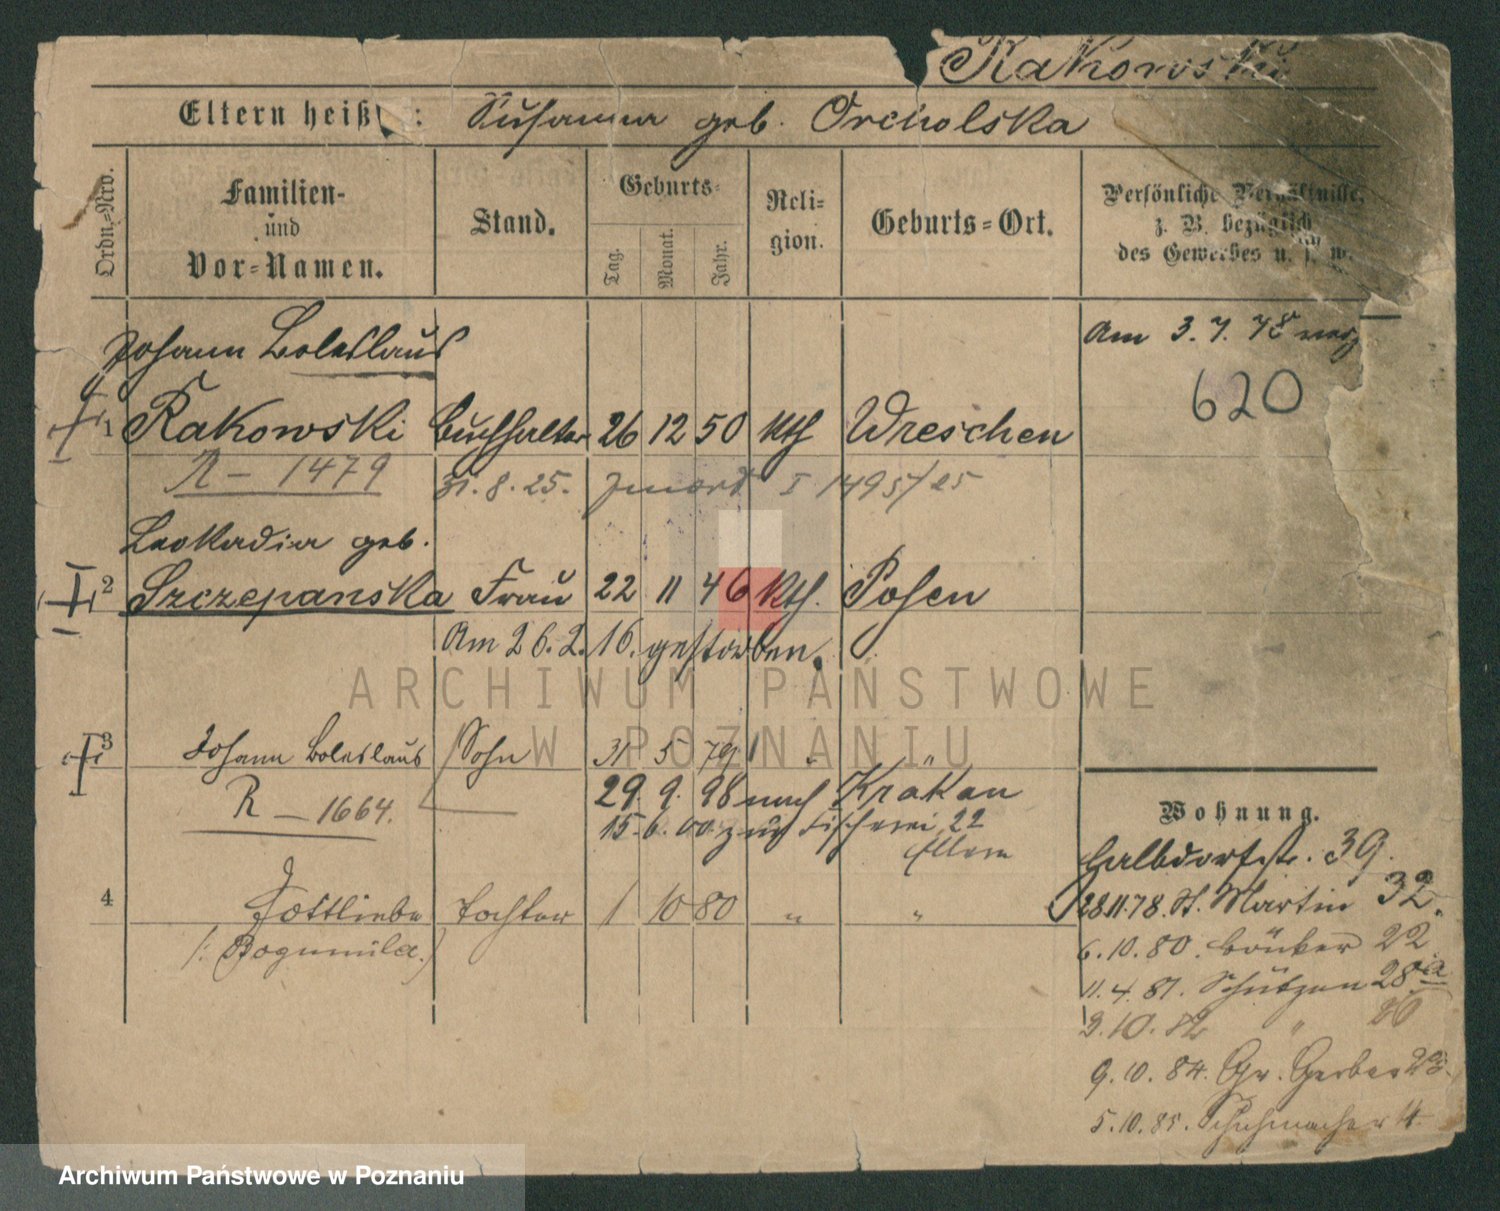 Rakowski
Eltern heiß : Susanna geb. Orcholska
Ordn.-Nro.
Familien- und Vor-Namen.
Stand.
Geburts-
Tag.
Monat.
Jahr.
Reli-
gion.
Geburts-Ort.
Persönliche Verhältnisse,
z. B. bezüglich
des Gewerbes u. s. w.
Johann Boleslaus
Am 3. 7. 78
620
1 Rakowski Buchhalter 26 12 50 kth Wreschen
R - 1479 31. 8. 25. I 1495/25
Leokadia geb.
2 Szczepanska Frau 22 11 46 kth. Posen
Am 26. 2. 16. gestorben.
3 Johann Boleslaus Sohn 31 5 79 " "
R - 1664. 29. 9. 98 nach Krakau
15. 6. 00. zur Fischerei 22
Eltern
4 Gottliebe Tochter 1 10 80 " "
/: Bogumila.
Wohnung.
Halbdorfstr. 39.
28.11.78. St. Martin 32.
6. 10. 80. Bäcker 22
11. 4. 81. Schützen 28a
3. 10. 82 " 20
9. 10. 84. Gr. Gerber
5. 10. 85. Schuhmacher 4
ARCHIWUM PAŃSTWOWE
W POZNANIU
Archiwum Państwowe w Poznaniu